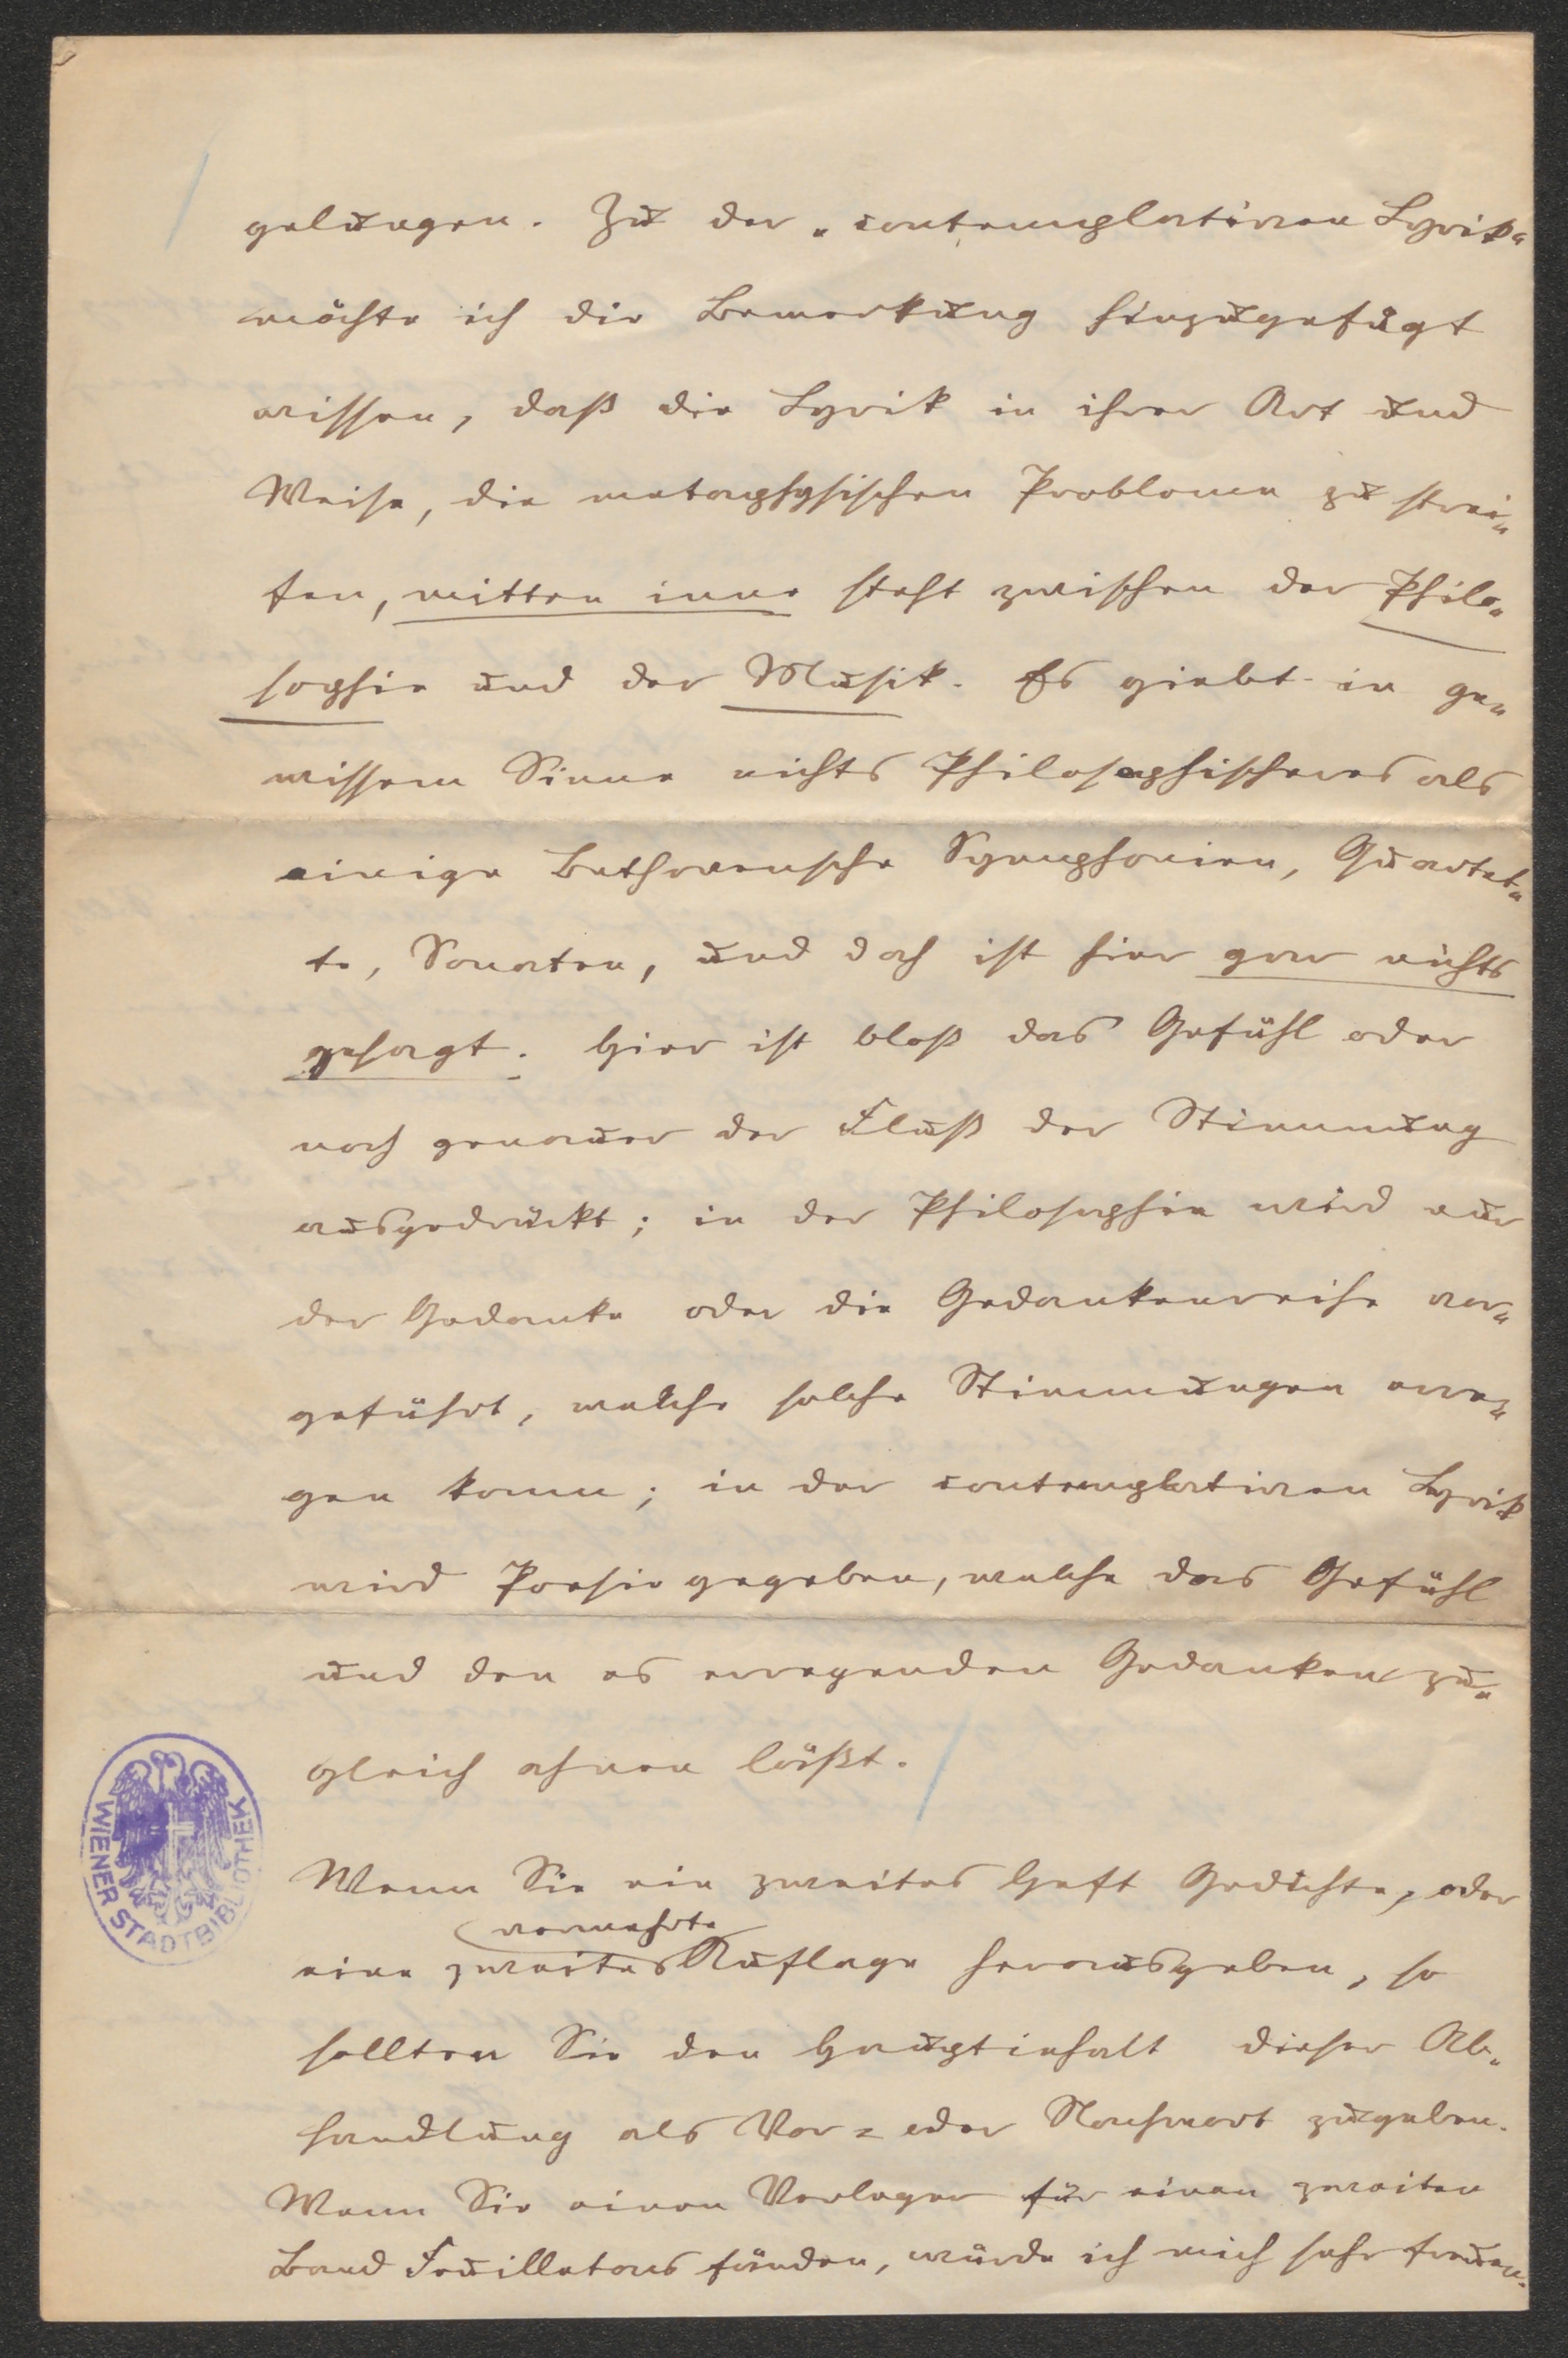 gelungen. Zu der „contemplativen Lyrik“
möchte ich die Bemerkung hinzugefügt
wissen, daß die Lyrik in ihrer Art und
Weise, die metaphysischen Probleme zu strei-
fen, mitten inne steht zwischen der Philo-
sophie und der Musik. Es giebt in ge-
wissem Sinne nichts Philosophischeres als
einige Bethovensche Symphonien, Quartet-
te, Sonaten, und doch ist hier gar nichts
gesagt. Hier ist bloß das Gefühl oder
noch genauer der Fluß der Stimmung
ausgedrückt; in der Philosophie wird nur
der Gedanke oder die Gedankenreihe vor-
geführt, welche solche Stimmungen erre-
gen kann; in der contemplativen Lyrik
wird Poesie gegeben, welche das Gefühl
und den es erregenden Gedanken zu-
gleich ahnen läßt.
Wenn Sie ein zweites Heft Gedichte, oder
vermehrte
eine zweites Auflage herausgeben, so
sollten Sie den Hauptinhalt dieser Ab-
handlung als Vor- oder Nachwort zugeben.
Wenn Sie einen Verleger für einen zweiten
Band Feuilletons fänden, würde ich mich sehr freuen.
WIENER STADTBIBLIOTHEK